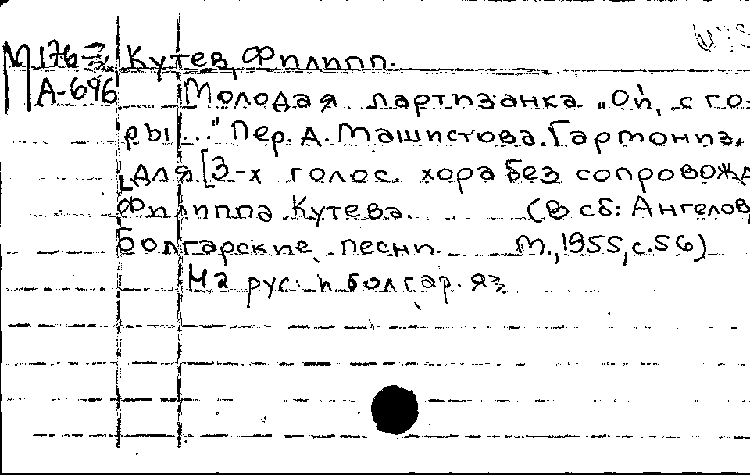 М 176 Кутев, Филипп.
А-696 Молодая партизанка „Ой, с го
ры..." Пер. А. Машистова. Гармониз.
для [3-х голос. хора без сопровожд
Филиппа Кутева. (В сб: Ангелов
Болгарские песни. М., 1955, с.56)
На рус. и болгар. яз